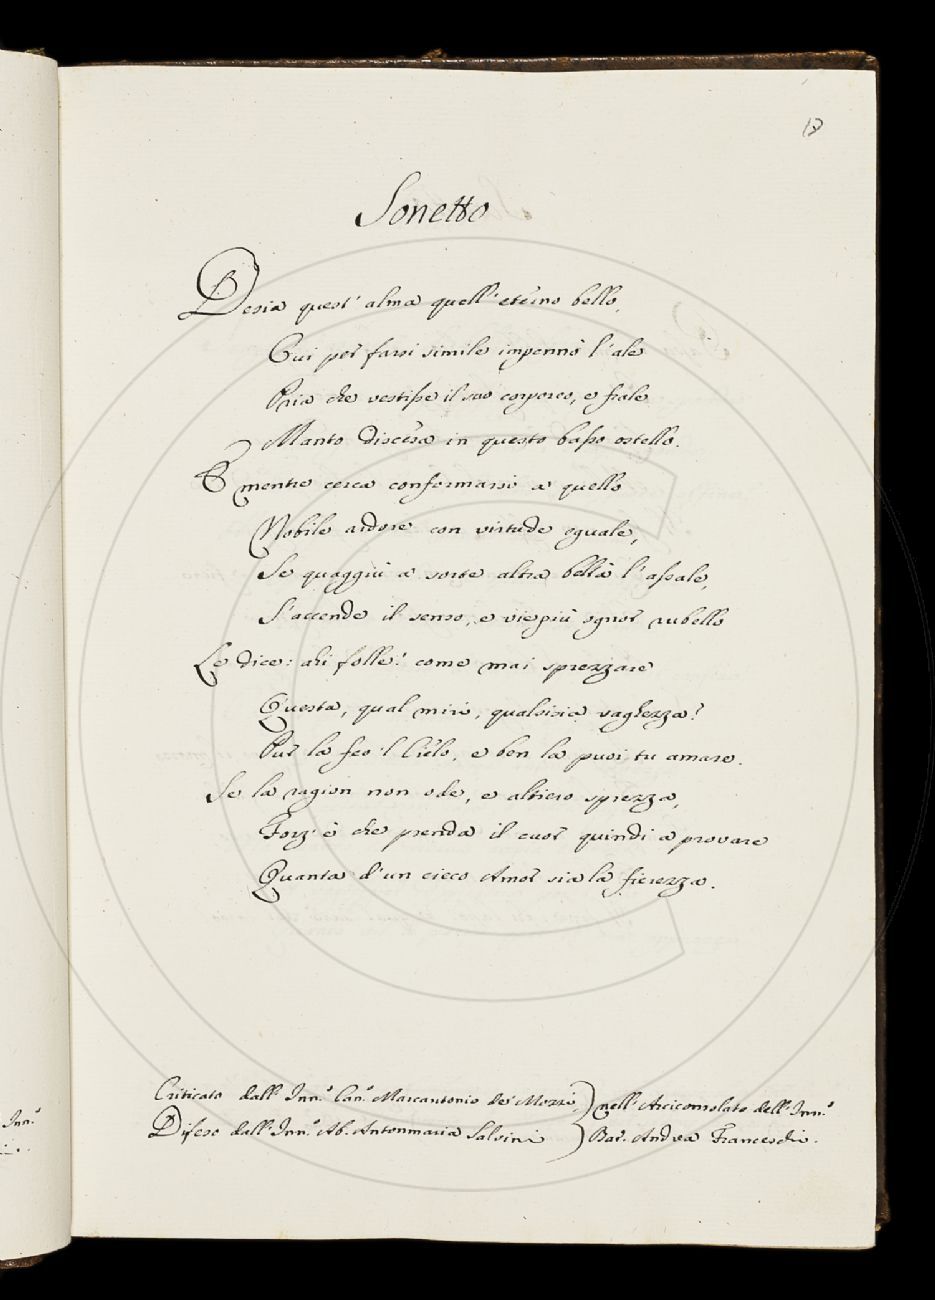 18
Sonetto
Desia quest' alma quell' eterno bello,
Cui per farsi simile impennò l'ale
Pria che vestisse il suo corporeo, e frale
Manto discesa in questo basso ostello.
E mentre cerca conformarsi a quello
Nobile ardore con virtude eguale,
Se quaggiù a sorte altra beltà l'assale,
S'accende il senso, e viepiù ognor rubello
Le dice: ahi folle! come mai sprezzare
Questa, qual miri, qualsisia vaghezza?
Pur la feo 'l Cielo, e ben la puoi tu amare.
Se la ragion non ode, e altiero sprezza,
Forz' è che prenda il cuor quindi a provare
Quanta d'un cieco Amor sia la fierezza.
Criticato dall' Inn.º Can.º Marcantonio de' Mozzi } nell' Arciconsolato dell' Inn.º
Difeso dall' Inn.º Ab. Antonmaria Salvini } Bar. Andrea Franceschi.
Inn.º